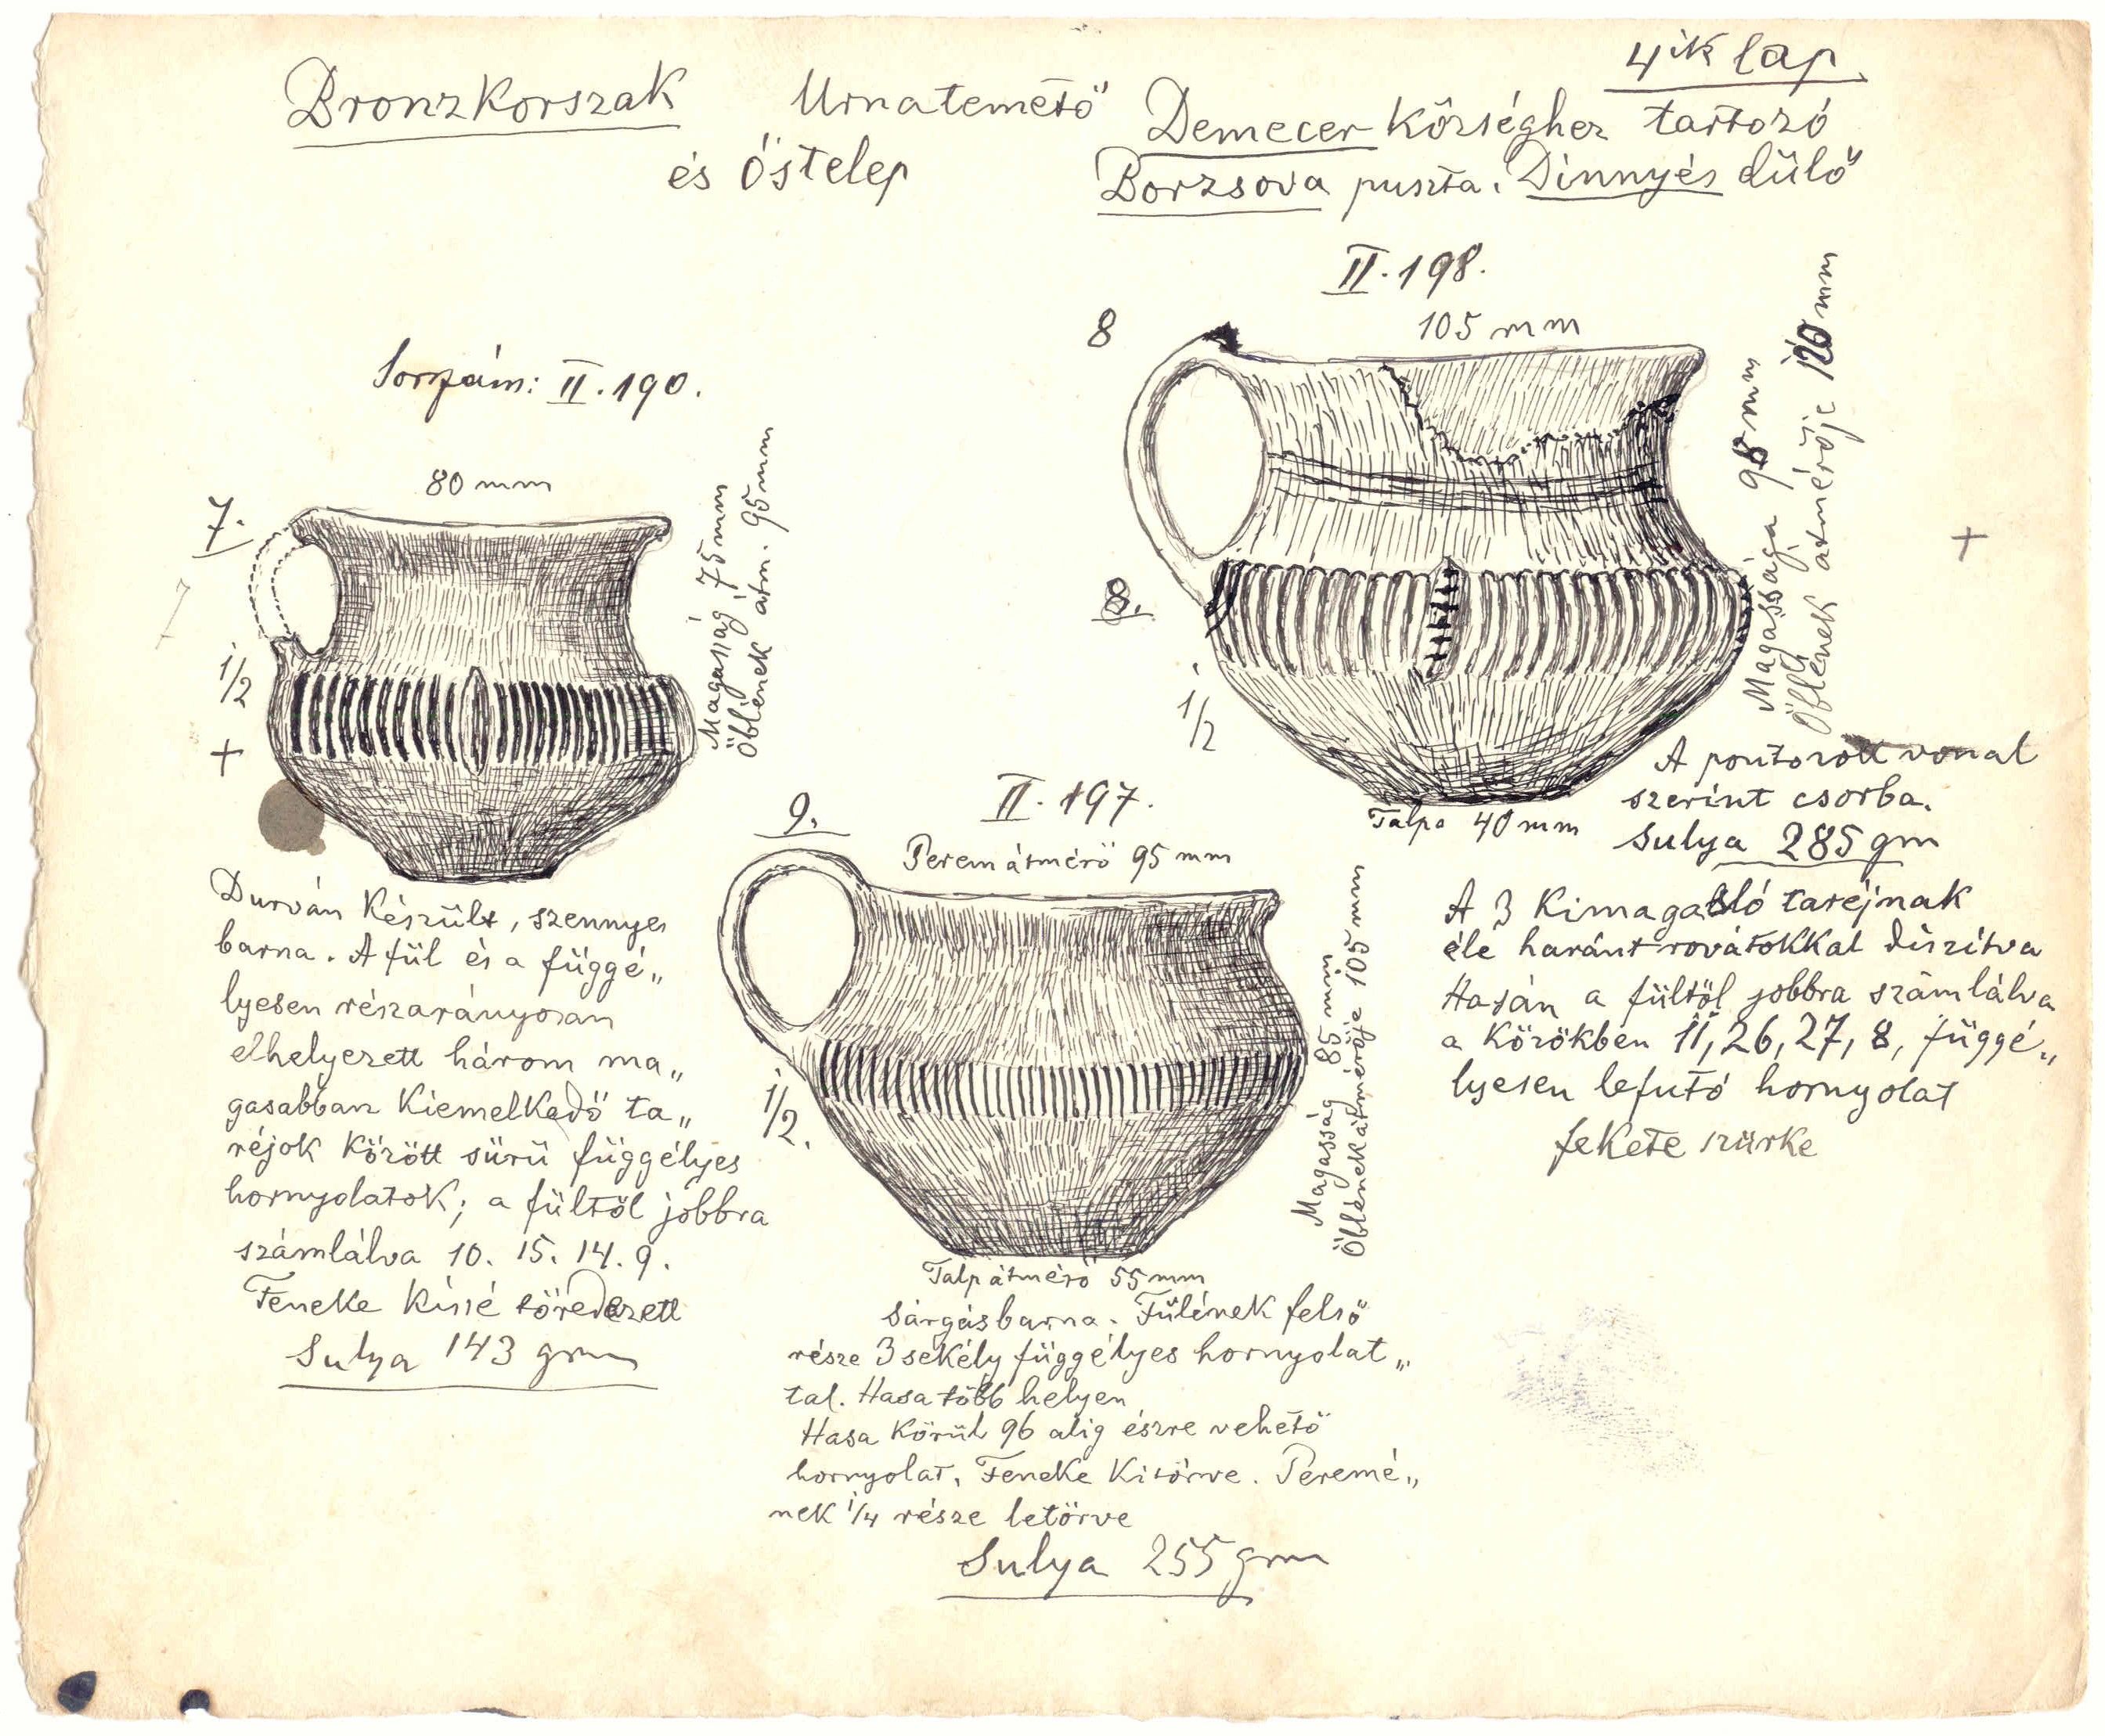 4ik lap
Bronzkorszak Urnatemető Demecer községhez tartozó
és őstelep Borzsova puszta. Dinnyés dűlő
Sorszám: II. 190.
80 mm
7.
7
1/2
+
Magasság 75 mm
Öblének átm. 95 mm
Durván készült, szennyes
barna. A fül és a függé„
lyesen részarányosan
elhelyezett három ma„
gasabban kiemelkedő ta„
réjok között sürü függélyes
hornyolatok; a fültöl jobbra
számlálva 10. 15. 14. 9.
Feneke kissé töredezett
Sulya 143 grm
II. 198.
8
105 mm
8.
1/2
Magassága 95 mm
Öblének átmérője 120 mm
+
Talpa 40 mm
A pontozott vonal
szerint csorba.
Sulya 285 gm
A 3 kimagasló taréjnak
éle haránt rovátokkal díszítva
Hasán a fültöl jobbra számlálva
a közökben 11, 26, 27, 8, függé„
lyesen lefutó hornyolat
fekete szürke
II. 197.
9.
Peremátmérö 95 mm
1/2.
Magasság 85 mm
Öblének átmérője 105 mm
Talpátmérö 55 mm
Sárgásbarna. Fülének felső
része 3 sekély függélyes hornyolat„
tal. Hasa több helyen
Hasa körül 96 alig észre vehető
hornyolat. Feneke kitörve. Peremé„
nek 1/4 része letörve
Sulya 255 grm